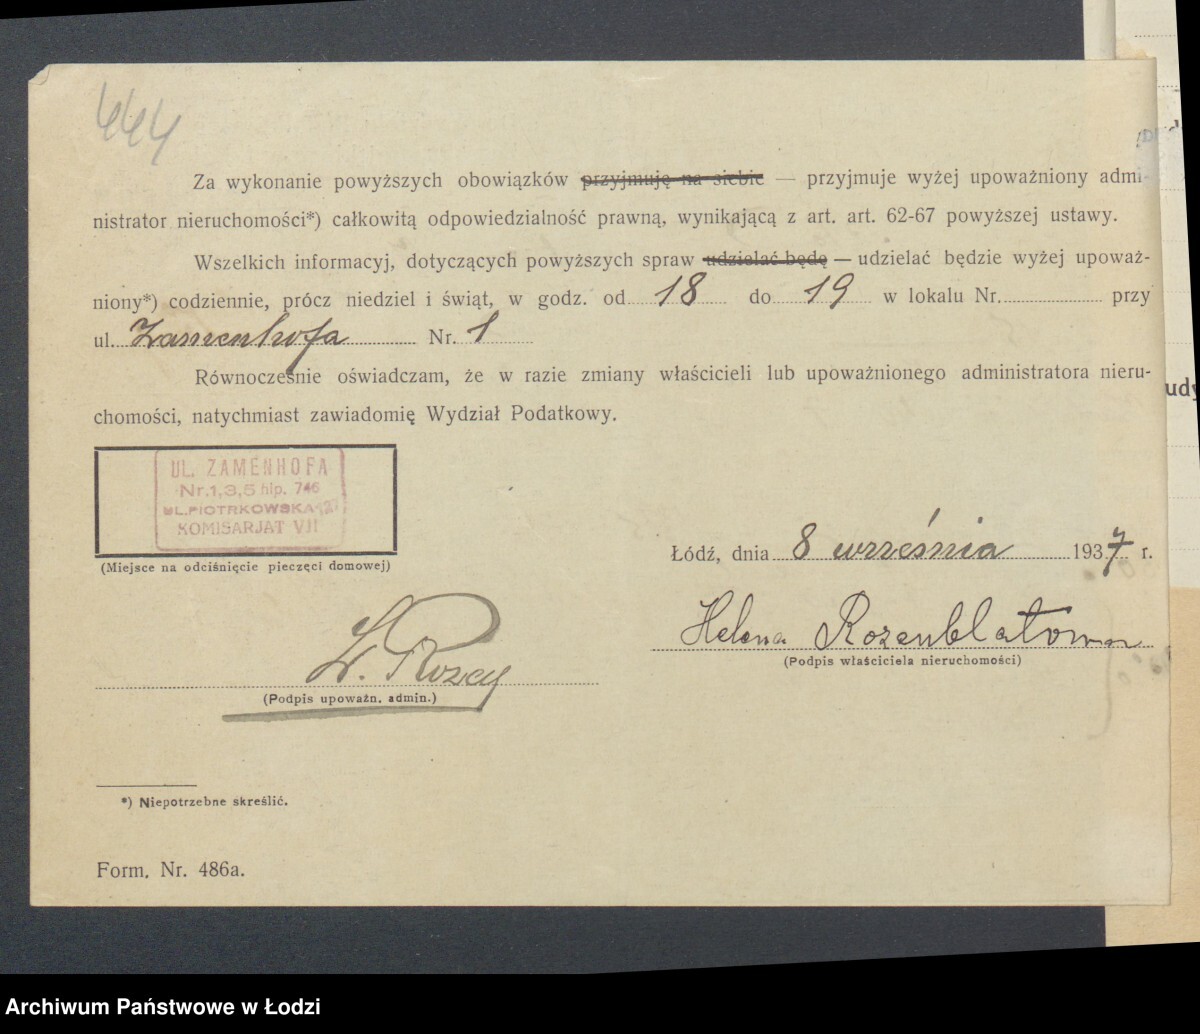 444
Za wykonanie powyższych obowiązków przyjmuję na siebie — przyjmuje wyżej upoważniony admi-
nistrator nieruchomości*) całkowitą odpowiedzialność prawną, wynikającą z art. art. 62-67 powyższej ustawy.
Wszelkich informacyj, dotyczących powyższych spraw udzielać będę — udzielać będzie wyżej upoważ-
niony*) codziennie, prócz niedziel i świąt, w godz. od 18 do 19 w lokalu Nr. przy
ul. Zamenhofa Nr. 1
Równocześnie oświadczam, że w razie zmiany właścicieli lub upoważnionego administratora nieru-
chomości, natychmiast zawiadomię Wydział Podatkowy.
UL. ZAMENHOFA
Nr. 1, 3, 5 hip. 746
UL. PIOTRKOWSKA
KOMISARJAT VII
(Miejsce na odciśnięcie pieczęci domowej)
Łódź, dnia 8 września 1937 r.
Helena Rozenblatowa
(Podpis właściciela nieruchomości)
(Podpis upoważn. admin.)
*) Niepotrzebne skreślić.
Form. Nr. 486a.
Archiwum Państwowe w Łodzi